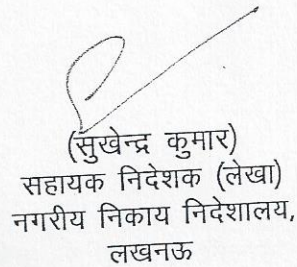 (सुखेन्द्र कुमार)
सहायक निदेशक (लेखा)
नगरीय निकाय निदेशालय,
लखनऊ